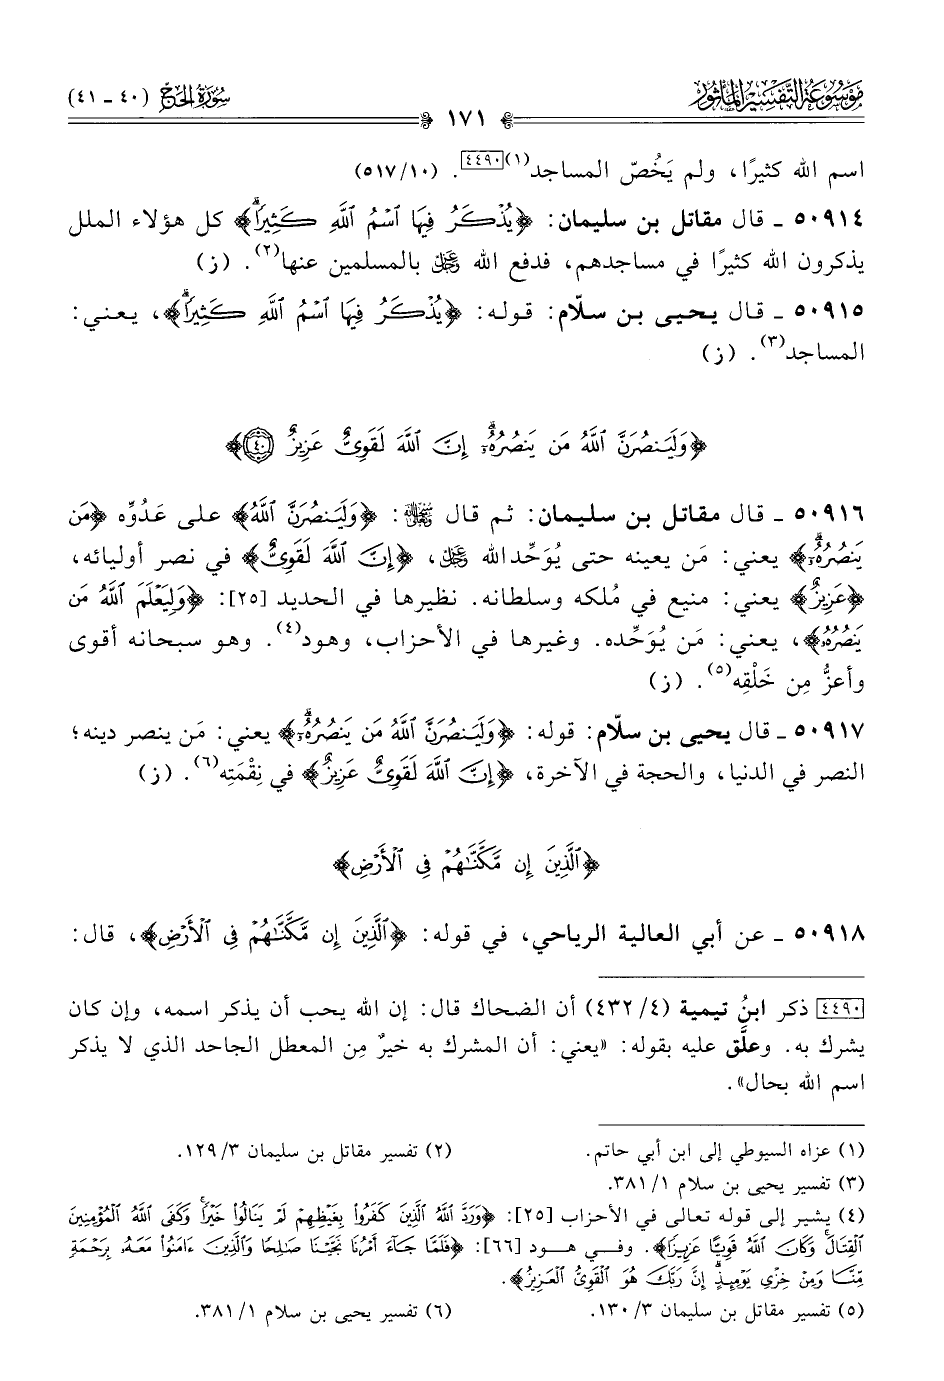 مَوْسُوعَةُ التَّفْسِيرِ المَأْثُورِ
سُورَةُ الحَجّ (٤٠ - ٤١)
١٧١
اسم الله كثيرًا، ولم يَخُصّ المساجد(١)[٤٤٩٠]. (١٠/٥١٧)
٥٠٩١٤ ـ قال مقاتل بن سليمان: ﴿يُذْكَرُ فِيهَا ٱسْمُ ٱللَّهِ كَثِيرًاۗ﴾ كل هؤلاء الملل
يذكرون الله كثيرًا في مساجدهم، فدفع الله ﷿ بالمسلمين عنها(٢). (ز)
٥٠٩١٥ ـ قال يحيى بن سلّام: قوله: ﴿يُذْكَرُ فِيهَا ٱسْمُ ٱللَّهِ كَثِيرًاۗ﴾، يعني:
المساجد(٣). (ز)
﴿وَلَيَنصُرَنَّ ٱللَّهُ مَن يَنصُرُهُۥٓۗ إِنَّ ٱللَّهَ لَقَوِىٌّ عَزِيزٌ ٤٠﴾
٥٠٩١٦ ـ قال مقاتل بن سليمان: ثم قال ﷾: ﴿وَلَيَنصُرَنَّ ٱللَّهُ﴾ على عَدُوِّه ﴿مَن
يَنصُرُهُۥٓۗ﴾ يعني: مَن يعينه حتى يُوَحِّد الله ﷿، ﴿إِنَّ ٱللَّهَ لَقَوِىٌّ﴾ في نصر أوليائه،
﴿عَزِيزٌ﴾ يعني: منيع في مُلكه وسلطانه. نظيرها في الحديد [٢٥]: ﴿وَلِيَعْلَمَ ٱللَّهُ مَن
يَنصُرُهُۥ﴾، يعني: مَن يُوَحِّده. وغيرها في الأحزاب، وهود(٤). وهو سبحانه أقوى
وأعزُّ مِن خَلْقِه(٥). (ز)
٥٠٩١٧ ـ قال يحيى بن سلّام: قوله: ﴿وَلَيَنصُرَنَّ ٱللَّهُ مَن يَنصُرُهُۥٓۗ﴾ يعني: مَن ينصر دينه؛
النصر في الدنيا، والحجة في الآخرة، ﴿إِنَّ ٱللَّهَ لَقَوِىٌّ عَزِيزٌ﴾ في نِقْمَتِه(٦). (ز)
﴿ٱلَّذِينَ إِن مَّكَّنَّٰهُمْ فِى ٱلْأَرْضِ﴾
٥٠٩١٨ ـ عن أبي العالية الرياحي، في قوله: ﴿ٱلَّذِينَ إِن مَّكَّنَّٰهُمْ فِى ٱلْأَرْضِ﴾، قال:
[٤٤٩٠] ذكر ابنُ تيمية (٤/٤٣٢) أن الضحاك قال: إن الله يحب أن يذكر اسمه، وإن كان
يشرك به. وعلَّق عليه بقوله: «يعني: أن المشرك به خيرٌ مِن المعطل الجاحد الذي لا يذكر
اسم الله بحال».
(١) عزاه السيوطي إلى ابن أبي حاتم.
(٢) تفسير مقاتل بن سليمان ٣/١٢٩.
(٣) تفسير يحيى بن سلام ١/٣٨١.
(٤) يشير إلى قوله تعالى في الأحزاب [٢٥]: ﴿وَرَدَّ ٱللَّهُ ٱلَّذِينَ كَفَرُوا۟ بِغَيْظِهِمْ لَمْ يَنَالُوا۟ خَيْرًاۚ وَكَفَى ٱللَّهُ ٱلْمُؤْمِنِينَ
ٱلْقِتَالَۚ وَكَانَ ٱللَّهُ قَوِيًّا عَزِيزًا﴾. وفي هود [٦٦]: ﴿فَلَمَّا جَآءَ أَمْرُنَا نَجَّيْنَا صَٰلِحًا وَٱلَّذِينَ ءَامَنُوا۟ مَعَهُۥ بِرَحْمَةٍ
مِّنَّا وَمِنْ خِزْىِ يَوْمِئِذٍۗ إِنَّ رَبَّكَ هُوَ ٱلْقَوِىُّ ٱلْعَزِيزُ﴾.
(٥) تفسير مقاتل بن سليمان ٣/١٣٠.
(٦) تفسير يحيى بن سلام ١/٣٨١.